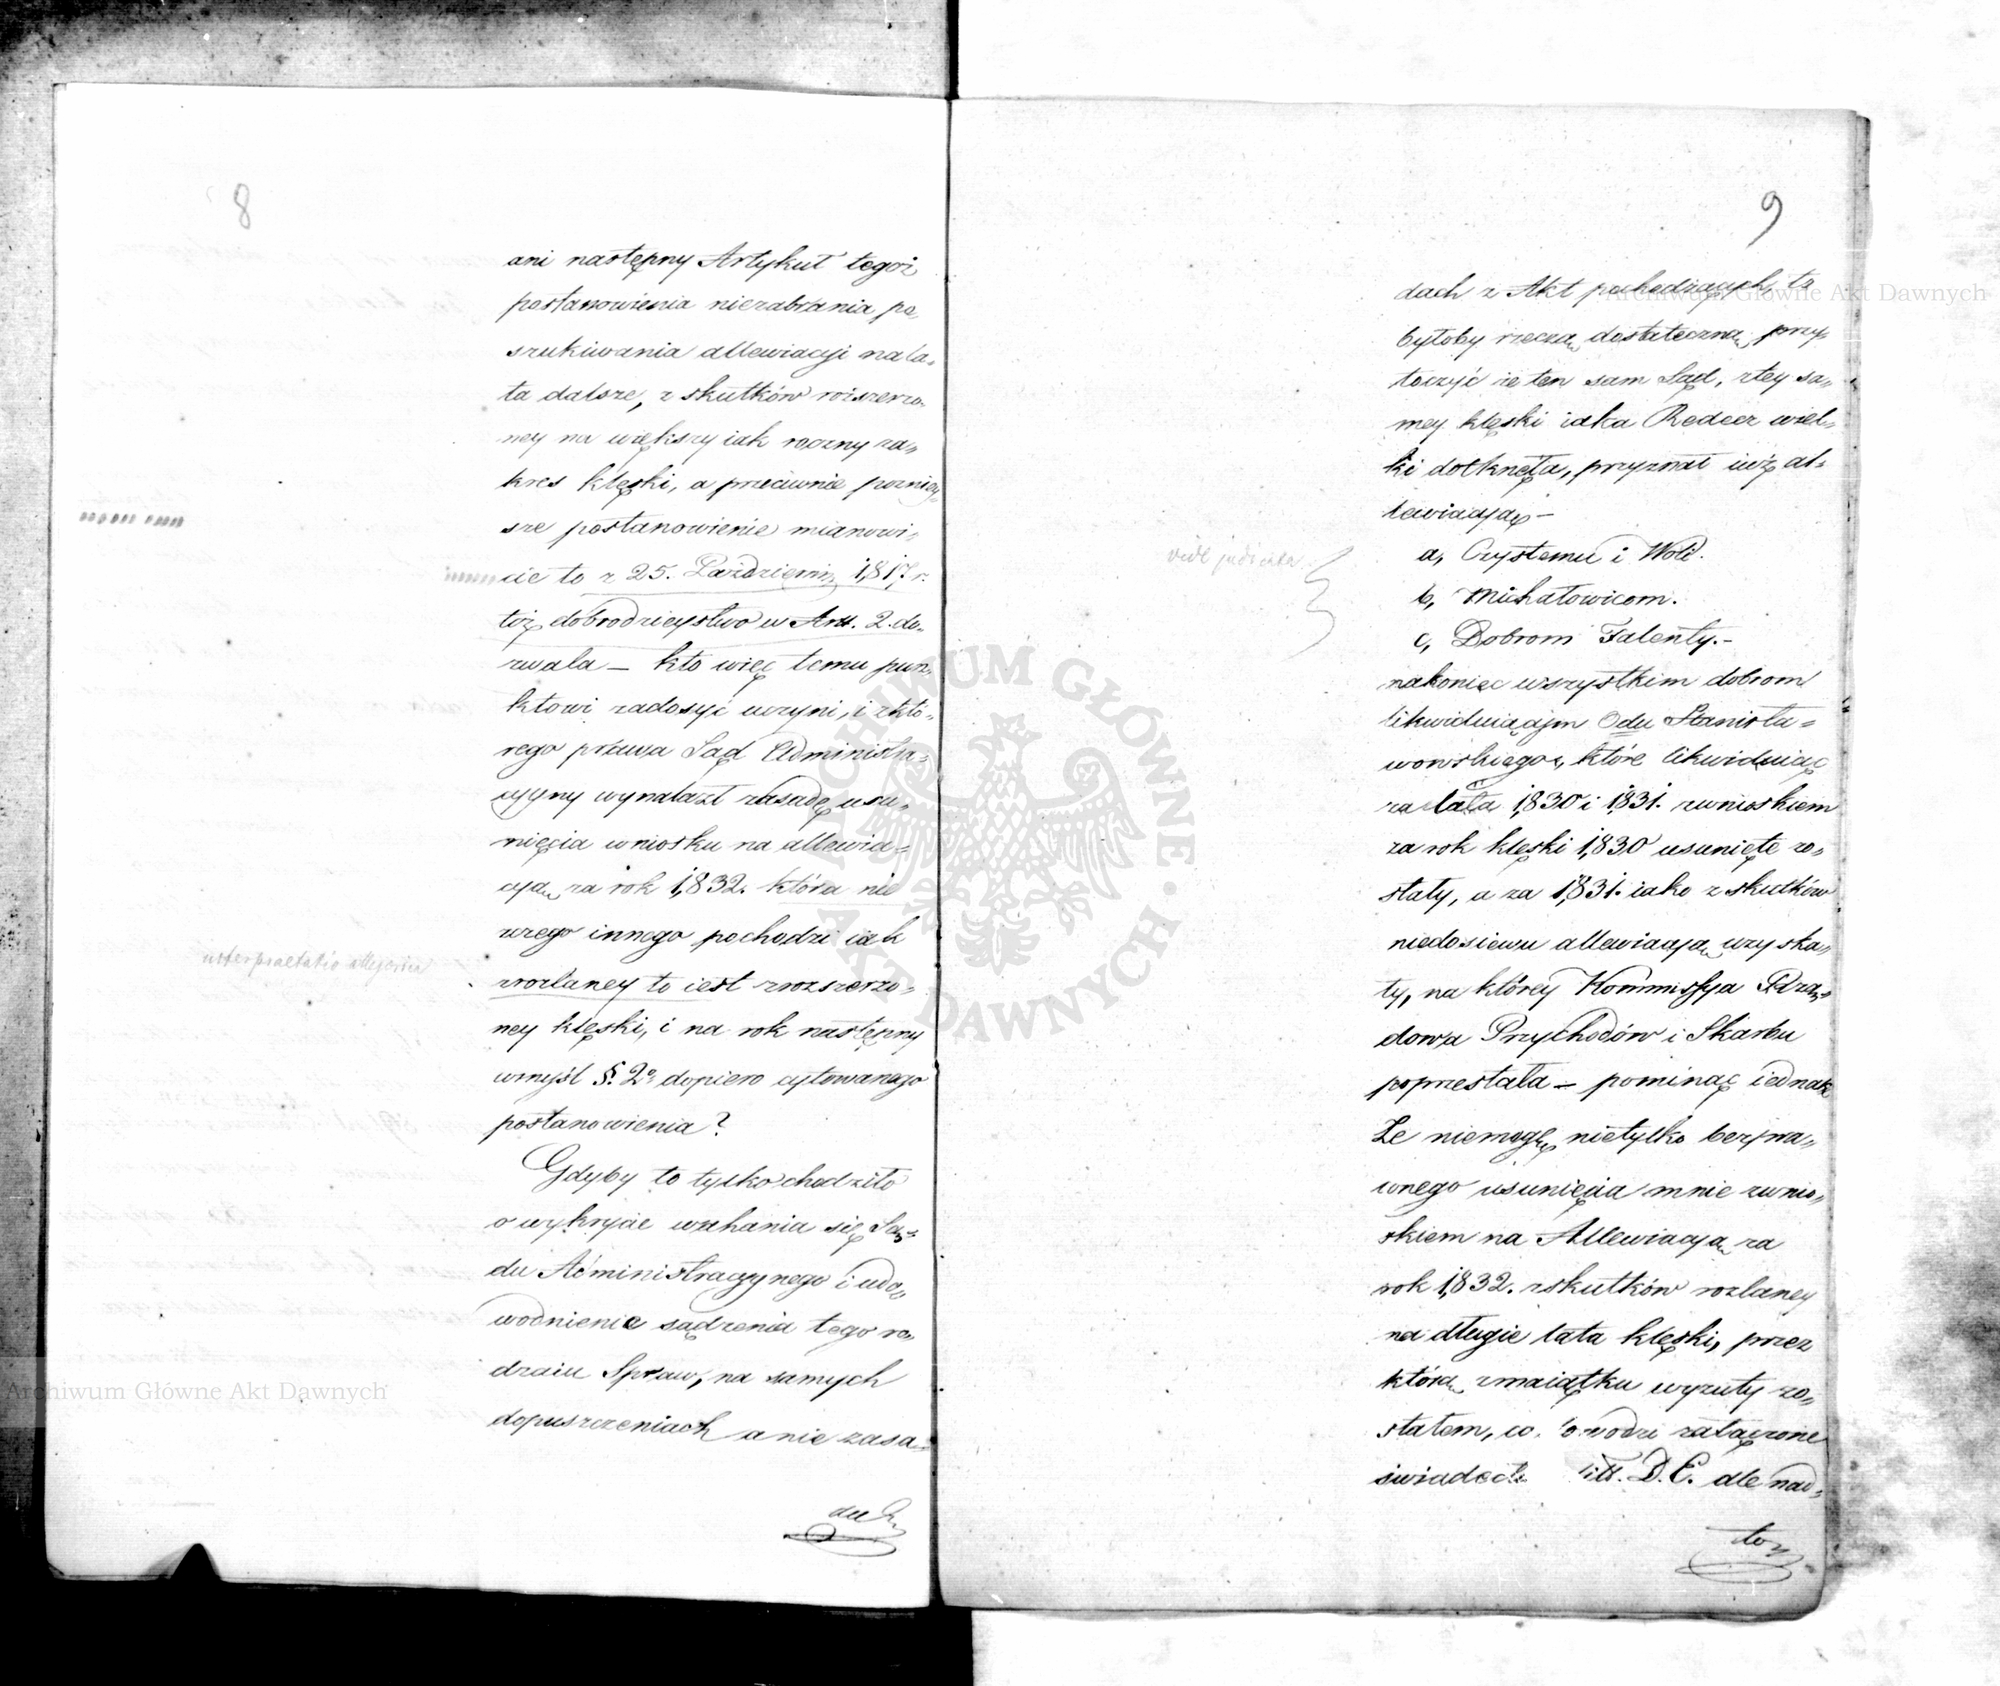 8
ani następny Artykuł tegoż
postanowienia niezabrania po
szukiwania allewiacyi na la=
ta dalsze, z skutków rozszerzo=
ney na większy iak roczny za=
kres klęski, a przeciwnie poźniey=
sze postanowienie mianowi=
cie to z 25. Października 1817 r.
toż dobrodzieystwo w Art. 2. do=
zwala — kto więc temu pun=
ktowi zadosyć uczyni, i z któ=
rego prawa Sąd Administra=
cyyny wynalazł zasadę usu=
nięcia wniosku na allewia=
cyą za rok 1832. która nie
z czego innego pochodzi iak
interpraetatio
z rozlaney to iest z rozszerzo=
ney klęski, i na rok następny
w myśl §. 2º dopiero cytowanego
postanowienia?
Gdyby to tylko chodziło
o wykrycie wahania się Są=
du Administracyynego i udo=
wodnienie sądzenia tego ro=
dzaiu Spraw, na samych
dopuszczeniach a nie zasa=
dach
9
dach z Akt pochodzących, to
byłoby rzeczą dostateczną przy=
toczyć że ten sam Sąd, z tey sa=
mey klęski iaka Redecz wiel=
ki dotknęła, przyznał iuż al=
lewiacyą —
a, Czystemu i Woli.
vide judicata
b, Michałowicom.
c, Dobrom Falenty. —
nakoniec wszystkim dobrom
likwiduiącym Odu Stanisła=
wowskiego, które likwiduiąc
za lata 1830 i 1831. z wnioskiem
za rok klęski 1830 usunięte zo=
stały, a za 1831. iako z skutków
niedosiewu allewiacyą uzyska=
ły, na którey Kommissya Rzą=
dowa Przychodów i Skarbu
poprzestała — pominąć iednak
Że niemogę nietylko bezpra=
wnego usunięcia mnie z wnio=
skiem na Allewiacyą za
rok 1832. z skutków rozlaney
na długie lata klęski, przez
którą z maiątku wyzuty zo=
stałem, co dowodzi załączone
świadectw Litt. D. E. ale nad=
to